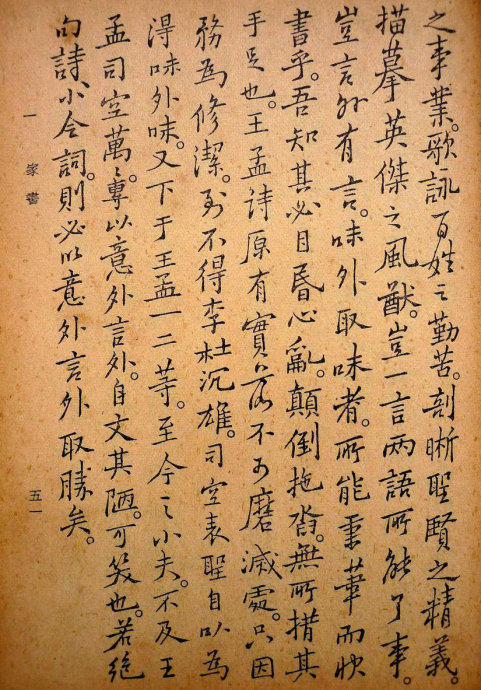 之事業。歌詠百姓之勤苦。剖晰聖賢之精義。
描摹英傑之風猷。豈一言兩語所能了事。
豈言外有言。味外取味者。所能秉筆而快
書乎。吾知其必目昏心亂。顛倒拖沓。無所措其
手足也。王孟詩原有實落不可磨滅處。只因
務為修潔。到不得李杜沉雄。司空表聖自以為
得味外味。又下于王孟一二等。至今之小夫。不及王
孟司空萬〻。專以意外言外。自文其陋。可笑也。若絕
句詩、小令詞。則必以意外言外取勝矣。
一 家書 五一